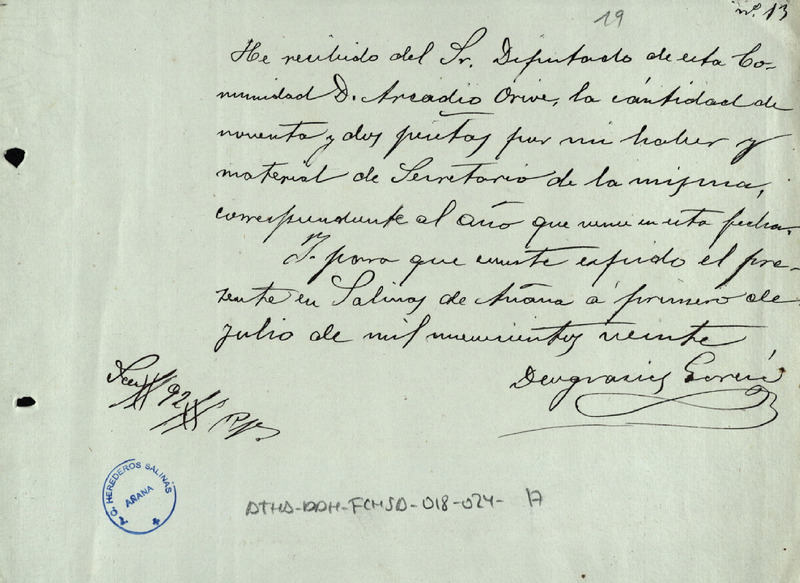 19
nº. 13
He recibido del Sr. Diputado de esta Co-
munidad D. Arcadio Orive, la cántidad de
noventa y dos pesetas por mi haber y
material de Secretario de la misma,
correspondiente al año que vence en esta fecha.
Y para que conste expido el pre-
sente en Salinas de Añana á primero de
julio de mil novecientos veinte
Deogracias García
92
T.Q. HEREDEROS SALINAS
AÑANA
ATHA-DAH-FCMSA-018-024- 17